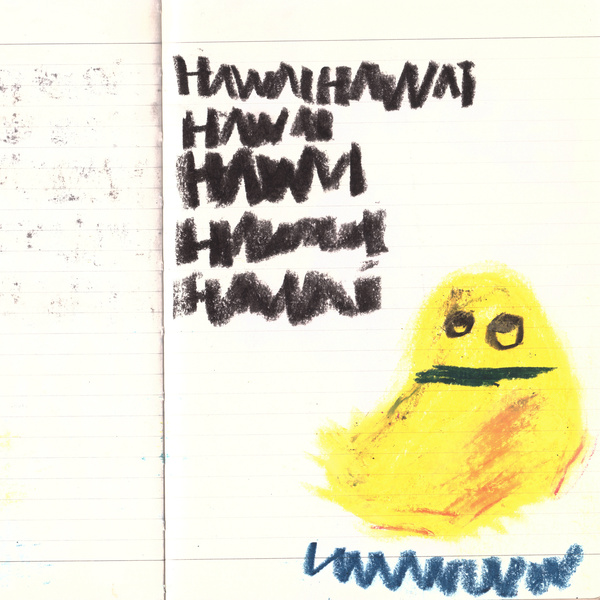 HAWAIHAWAI
HAWAII
HAWAI
HAWAII
HAWAI